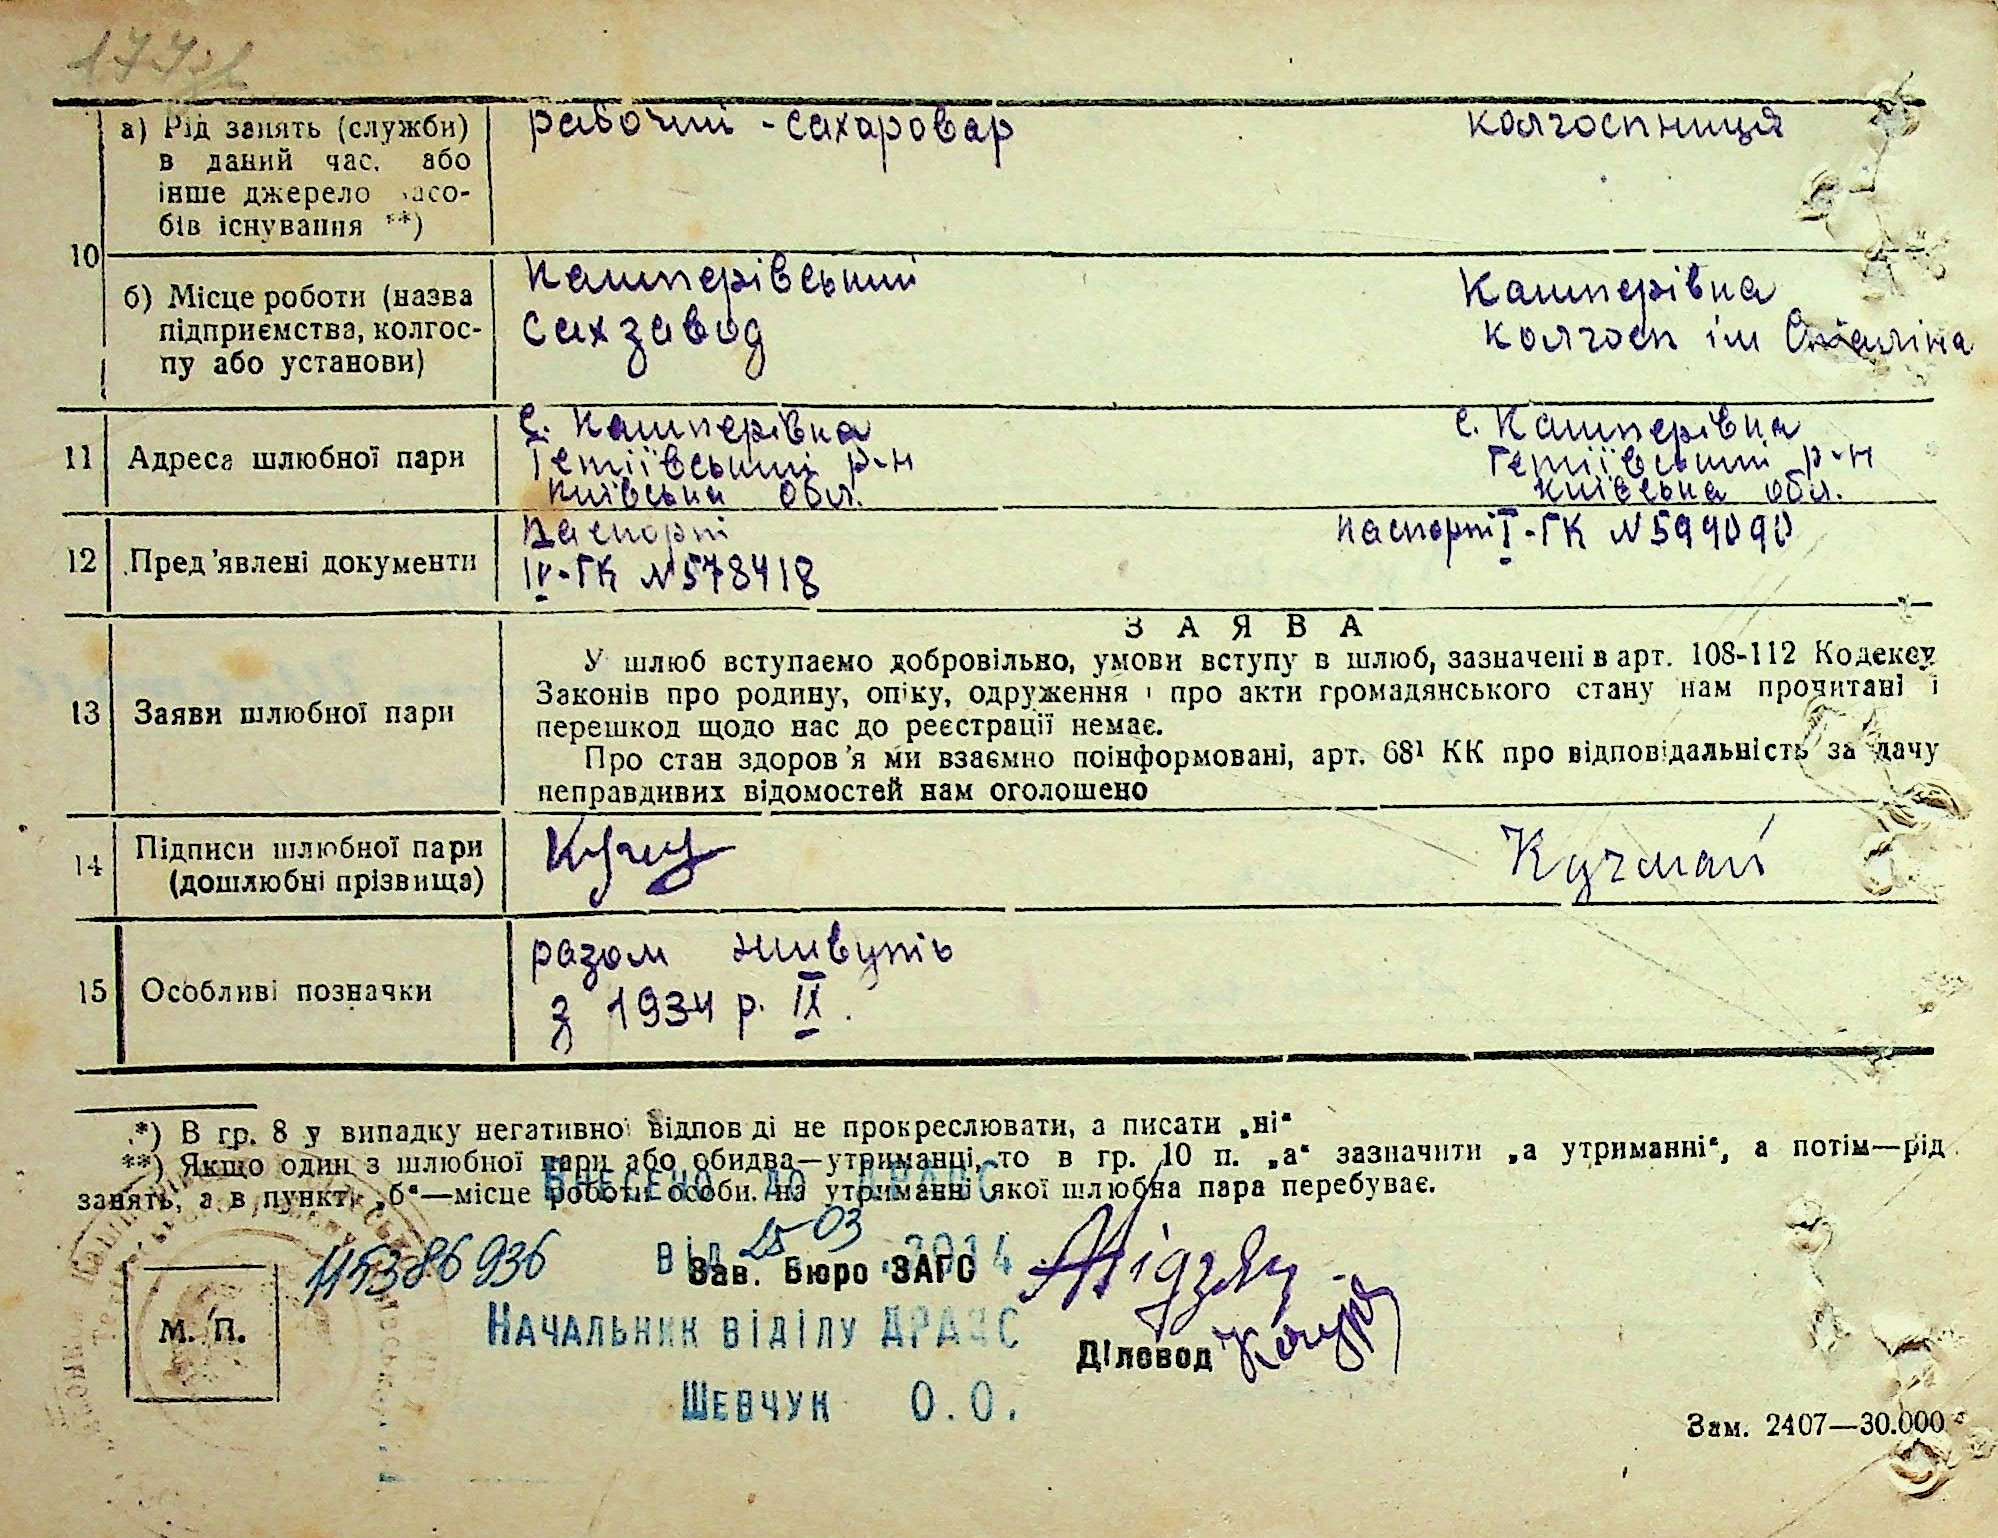 177
а) Рід занять (служби)
в даний час, або
інше джерело засо-
бів існування **)
рабочий - сахаровар
колгоспниця
10
б) Місце роботи (назва
підприємства, колгос-
пу або установи)
Кашперівський
сахзавод
Кашперівка
колгосп ім Сталіна
11
Адреса шлюбної пари
с. Кашперівка
Тетіївський р-н
Київська обл.
с. Кашперівка
Тетіївський р-н
Київська обл.
12
Пред'явлені документи
Паспорт
IV-ГК №578418
паспорт I-ГК №599090
13
Заяви шлюбної пари
ЗАЯВА
У шлюб вступаємо добровільно, умови вступу в шлюб, зазначені в арт. 108-112 Кодексу
Законів про родину, опіку, одруження і про акти громадянського стану нам прочитані і
перешкод щодо нас до реєстрації немає.
Про стан здоров'я ми взаємно поінформовані, арт. 68¹ КК про відповідальність за дачу
неправдивих відомостей нам оголошено
14
Підписи шлюбної пари
(дошлюбні прізвища)
15
Особливі позначки
разом живуть
з 1934 р. IX.
*) В гр. 8 у випадку негативної відповіді не прокреслювати, а писати „ні“
**) Якщо один з шлюбної пари або обидва—утриманці, то в гр. 10 п. „а“ зазначити „а утриманні“, а потім—рід
занять, а в пункті „б“—місце роботи особи, на утриманні якої шлюбна пара перебуває.
Внесено до ДРАЦС
115386936
від 25 03 .2014
Зав. Бюро ЗАГС
М. П.
Начальник відділу ДРАЦС
Діловод
Шевчук О.О.
Зам. 2407—30.000